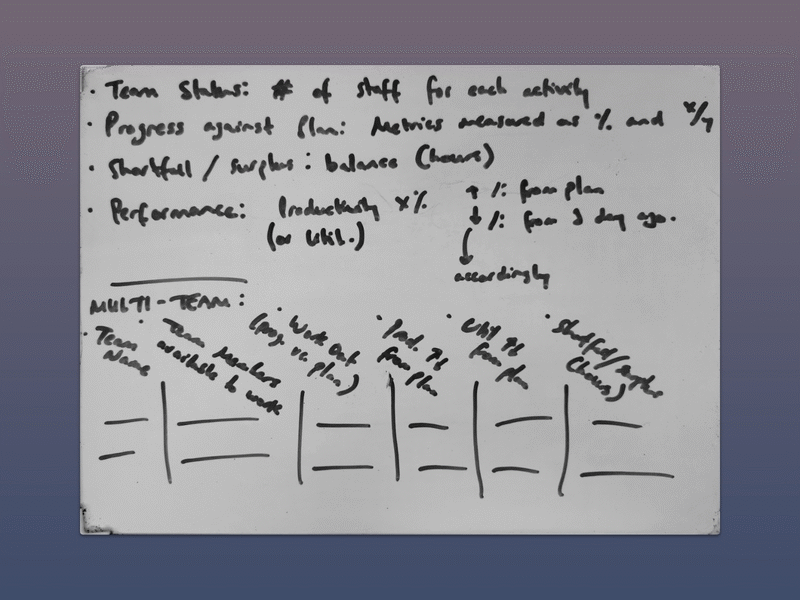 · Team Status: # of staff for each activity
· Progress against Plan: Metrics measured as % and x/y
· Shortfall / surplus: balance (hours)
· Performance: Productivity x% ↑ %: from plan
(or Util.) ↓ %: from 1 day ago.
accordingly
MULTI-TEAM:
· Team Name
· Team Members available to work
· Work Out (prog. vs. plan)
· Prod. ↑↓ from plan
· Util ↑↓ from plan
· Shortfall/surplus (hours)